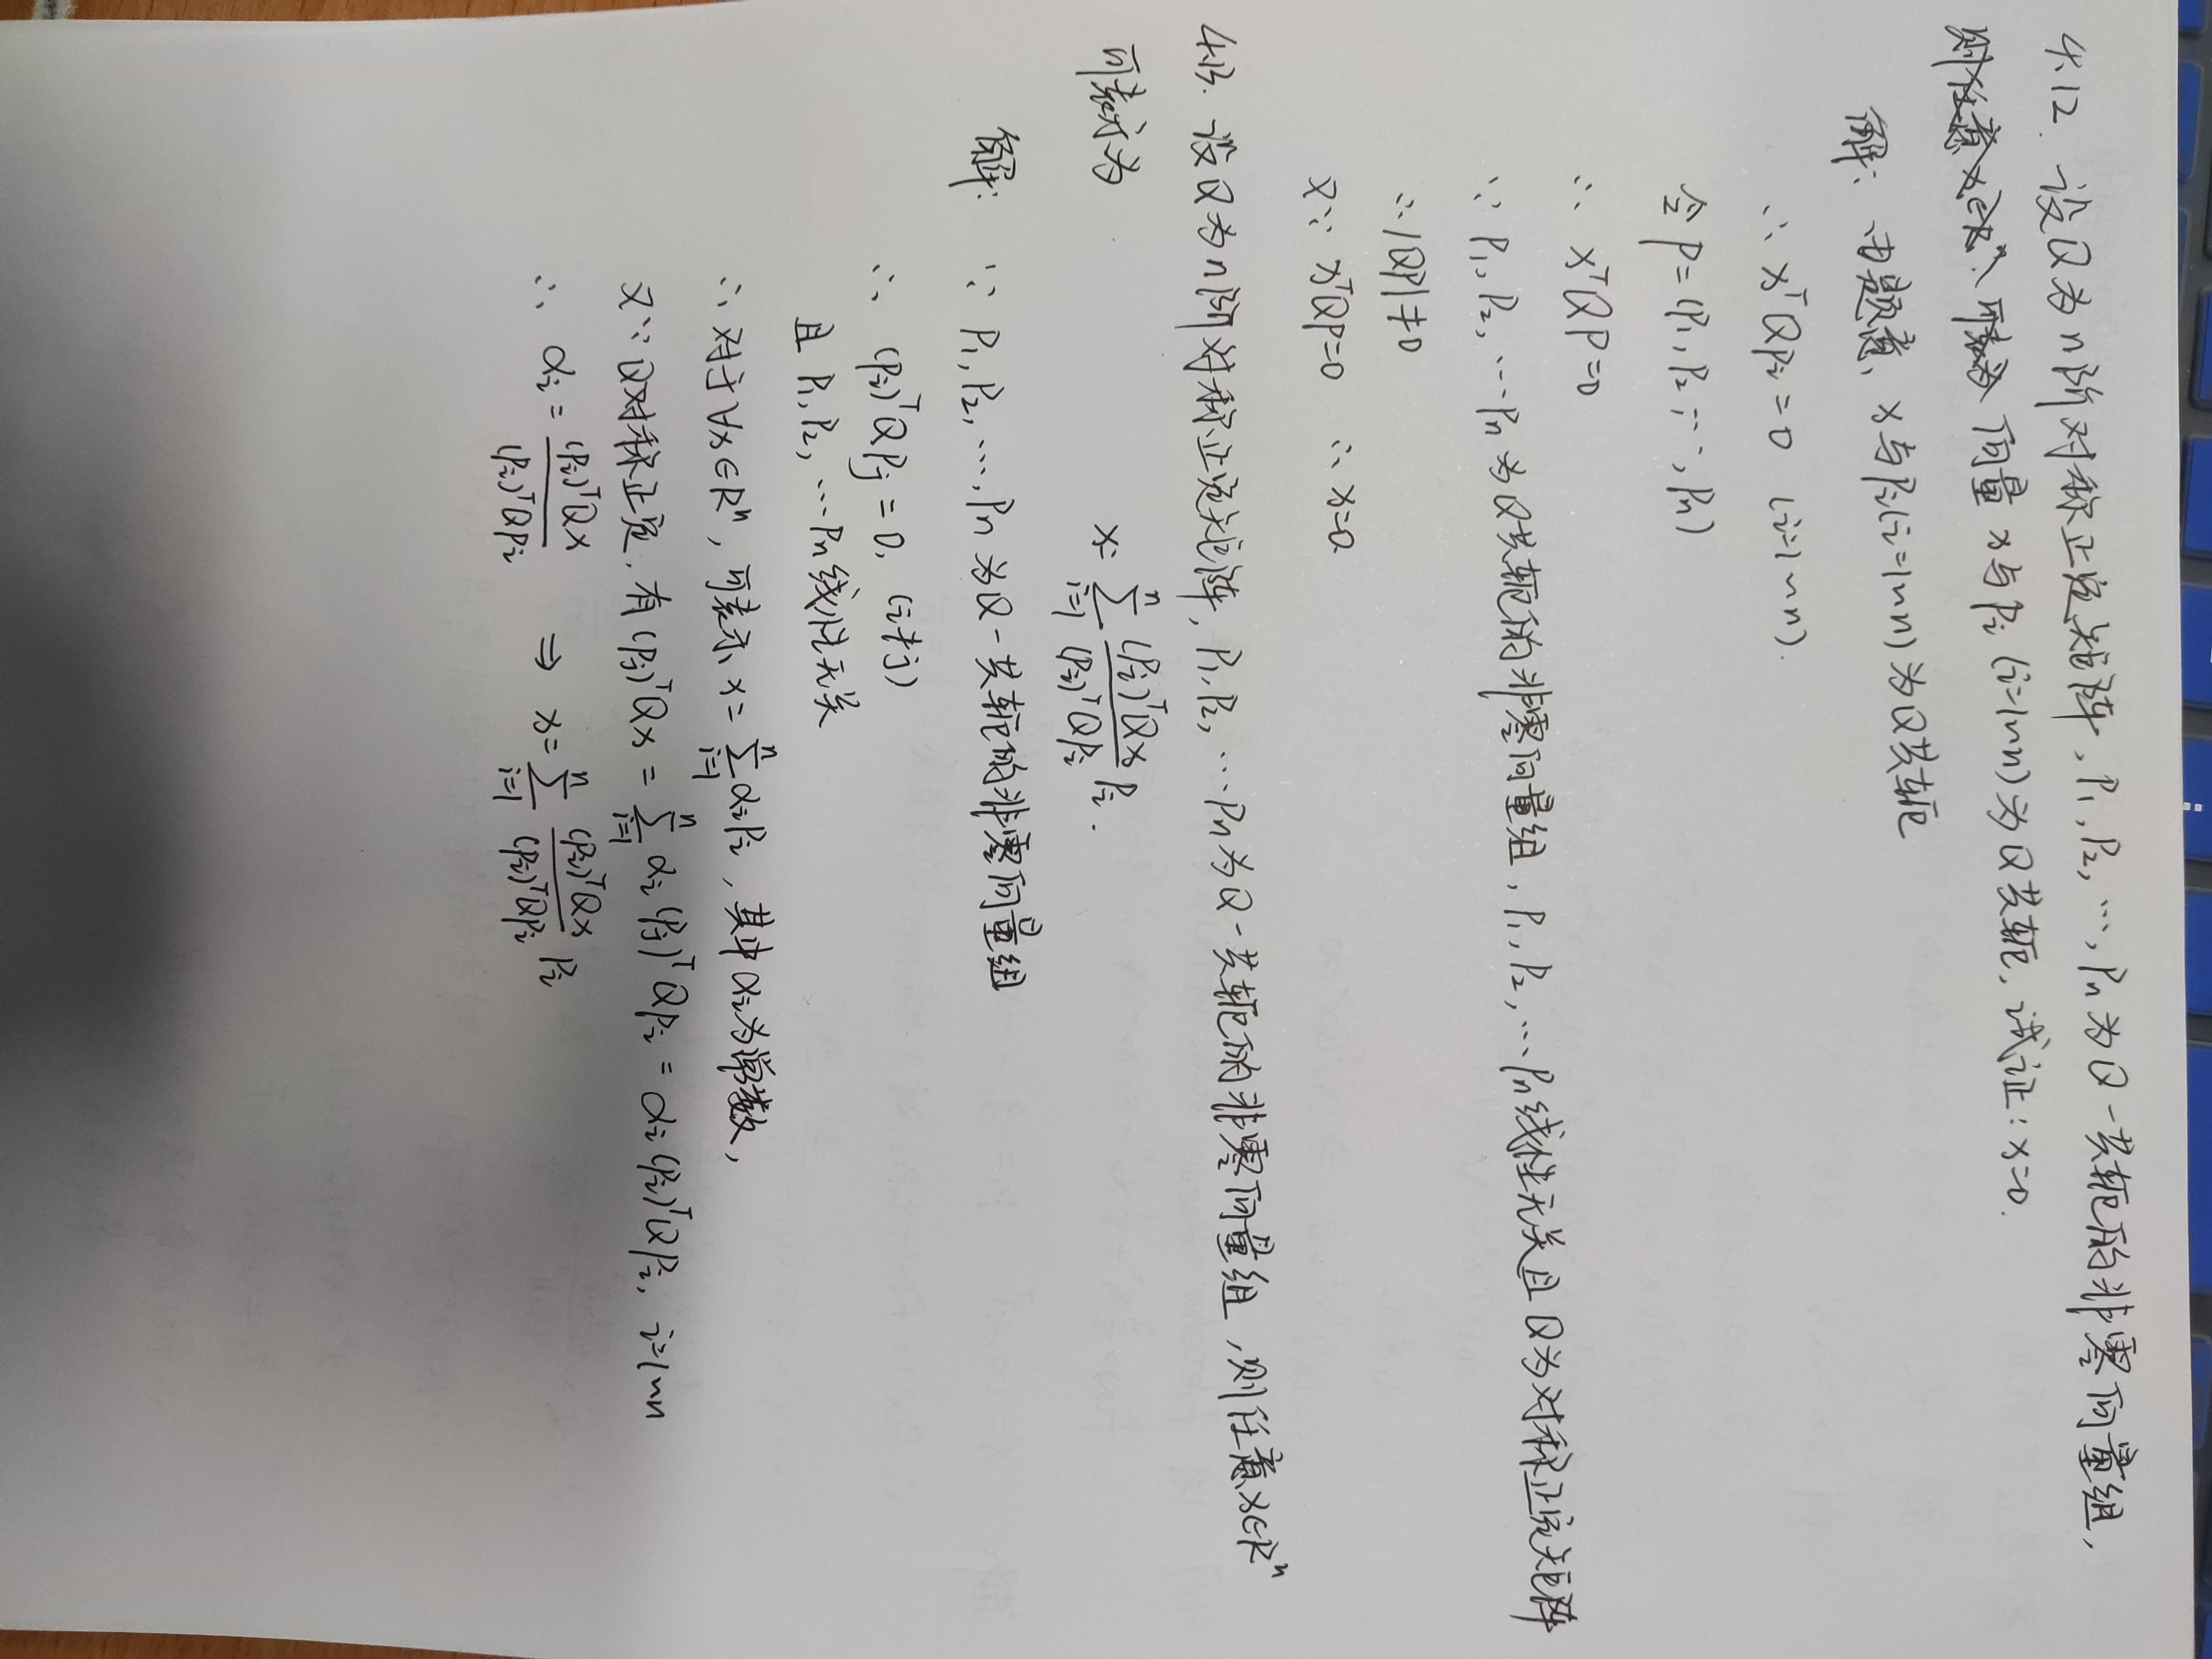 4.12. 设Q为n阶对称正定矩阵, P₁, P₂, …, Pₙ为Q-共轭的非零向量组,
则任意x∈Rⁿ, 可表为 向量x与Pᵢ (i=1~n)为Q共轭, 试证: x=0.
解: 由题意, x与Pᵢ(i=1~n)为Q共轭
∴ xᵀQPᵢ=0 (i=1~n).
令P=(P₁, P₂, …, Pₙ)
∴ xᵀQP=0
∵ P₁, P₂, …Pₙ为Q共轭的非零向量组, P₁, P₂, …Pₙ线性无关且Q为对称正定矩阵
∴ |QP|≠0
又∵ xᵀQP=0 ∴ x=0.
4.13. 设Q为n阶对称正定矩阵, P₁, P₂, …Pₙ为Q-共轭的非零向量组, 则任意x∈Rⁿ
可表示为
x=∑ⁿᵢ₌₁ (Pᵢ)ᵀQx/(Pᵢ)ᵀQPᵢ Pᵢ.
解: ∵ P₁, P₂, …, Pₙ为Q-共轭的非零向量组
∴ (Pᵢ)ᵀQPⱼ=0, (i≠j)
且P₁, P₂, …Pₙ线性无关
∴ 对于∀x∈Rⁿ, 可表示x=∑ⁿᵢ₌₁αᵢPᵢ, 其中αᵢ为常数,
又∵Q对称正定, 有(Pⱼ)ᵀQx=∑ⁿᵢ₌₁αᵢ(Pⱼ)ᵀQPᵢ=αᵢ(Pᵢ)ᵀQPᵢ, i=1~n
∴ αᵢ=(Pᵢ)ᵀQx/(Pᵢ)ᵀQPᵢ ⇒ x=∑ⁿᵢ₌₁ (Pᵢ)ᵀQx/(Pᵢ)ᵀQPᵢ Pᵢ